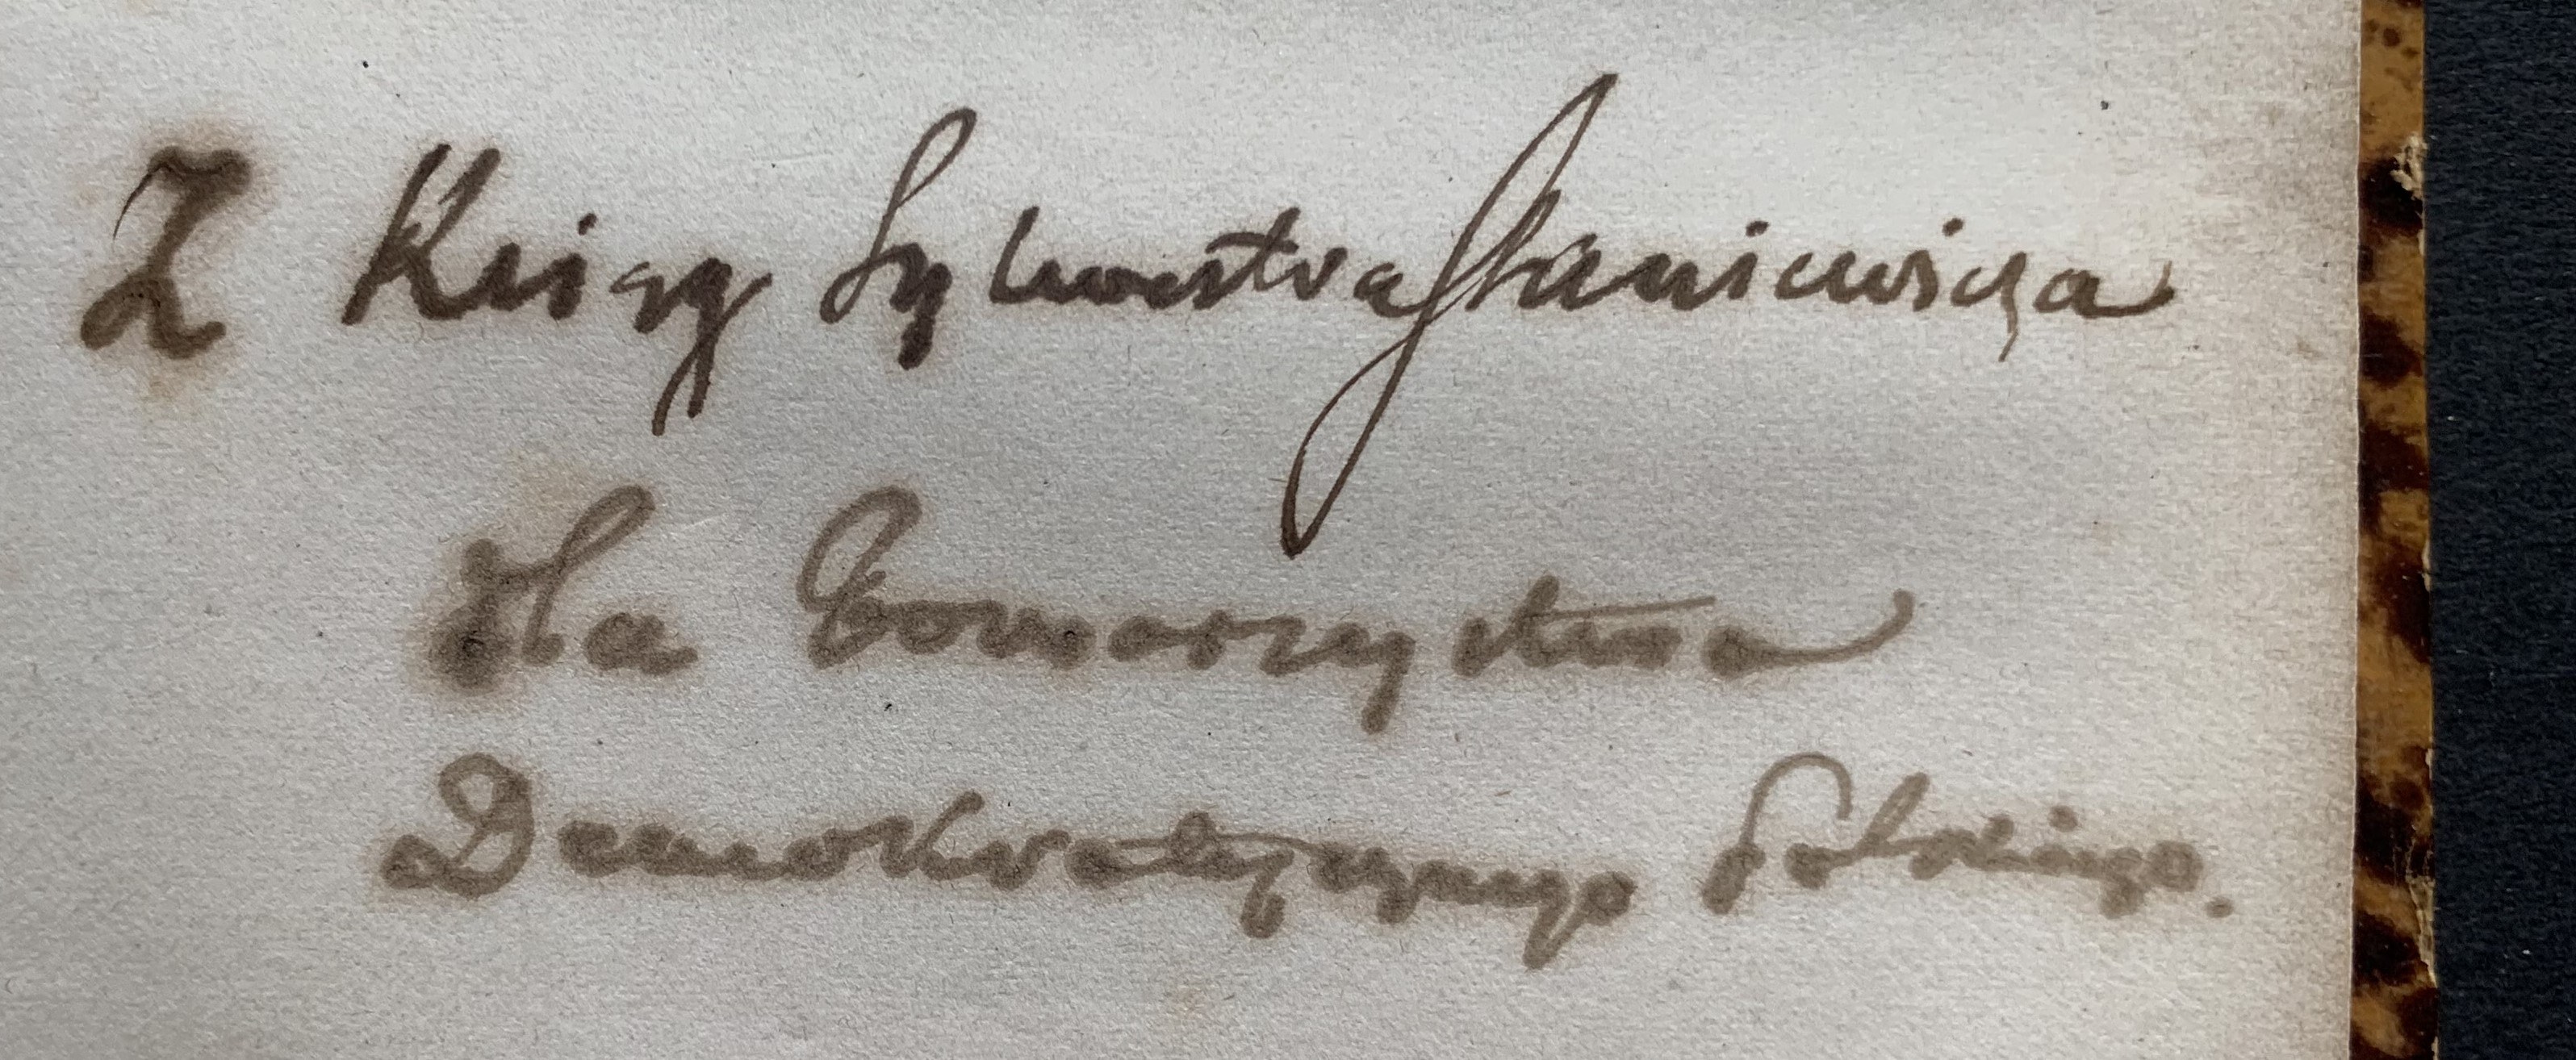 Z Ksiąg Sylwestra Staniewicza
dla Towarzystwa
Demokratycznego Polskiego.